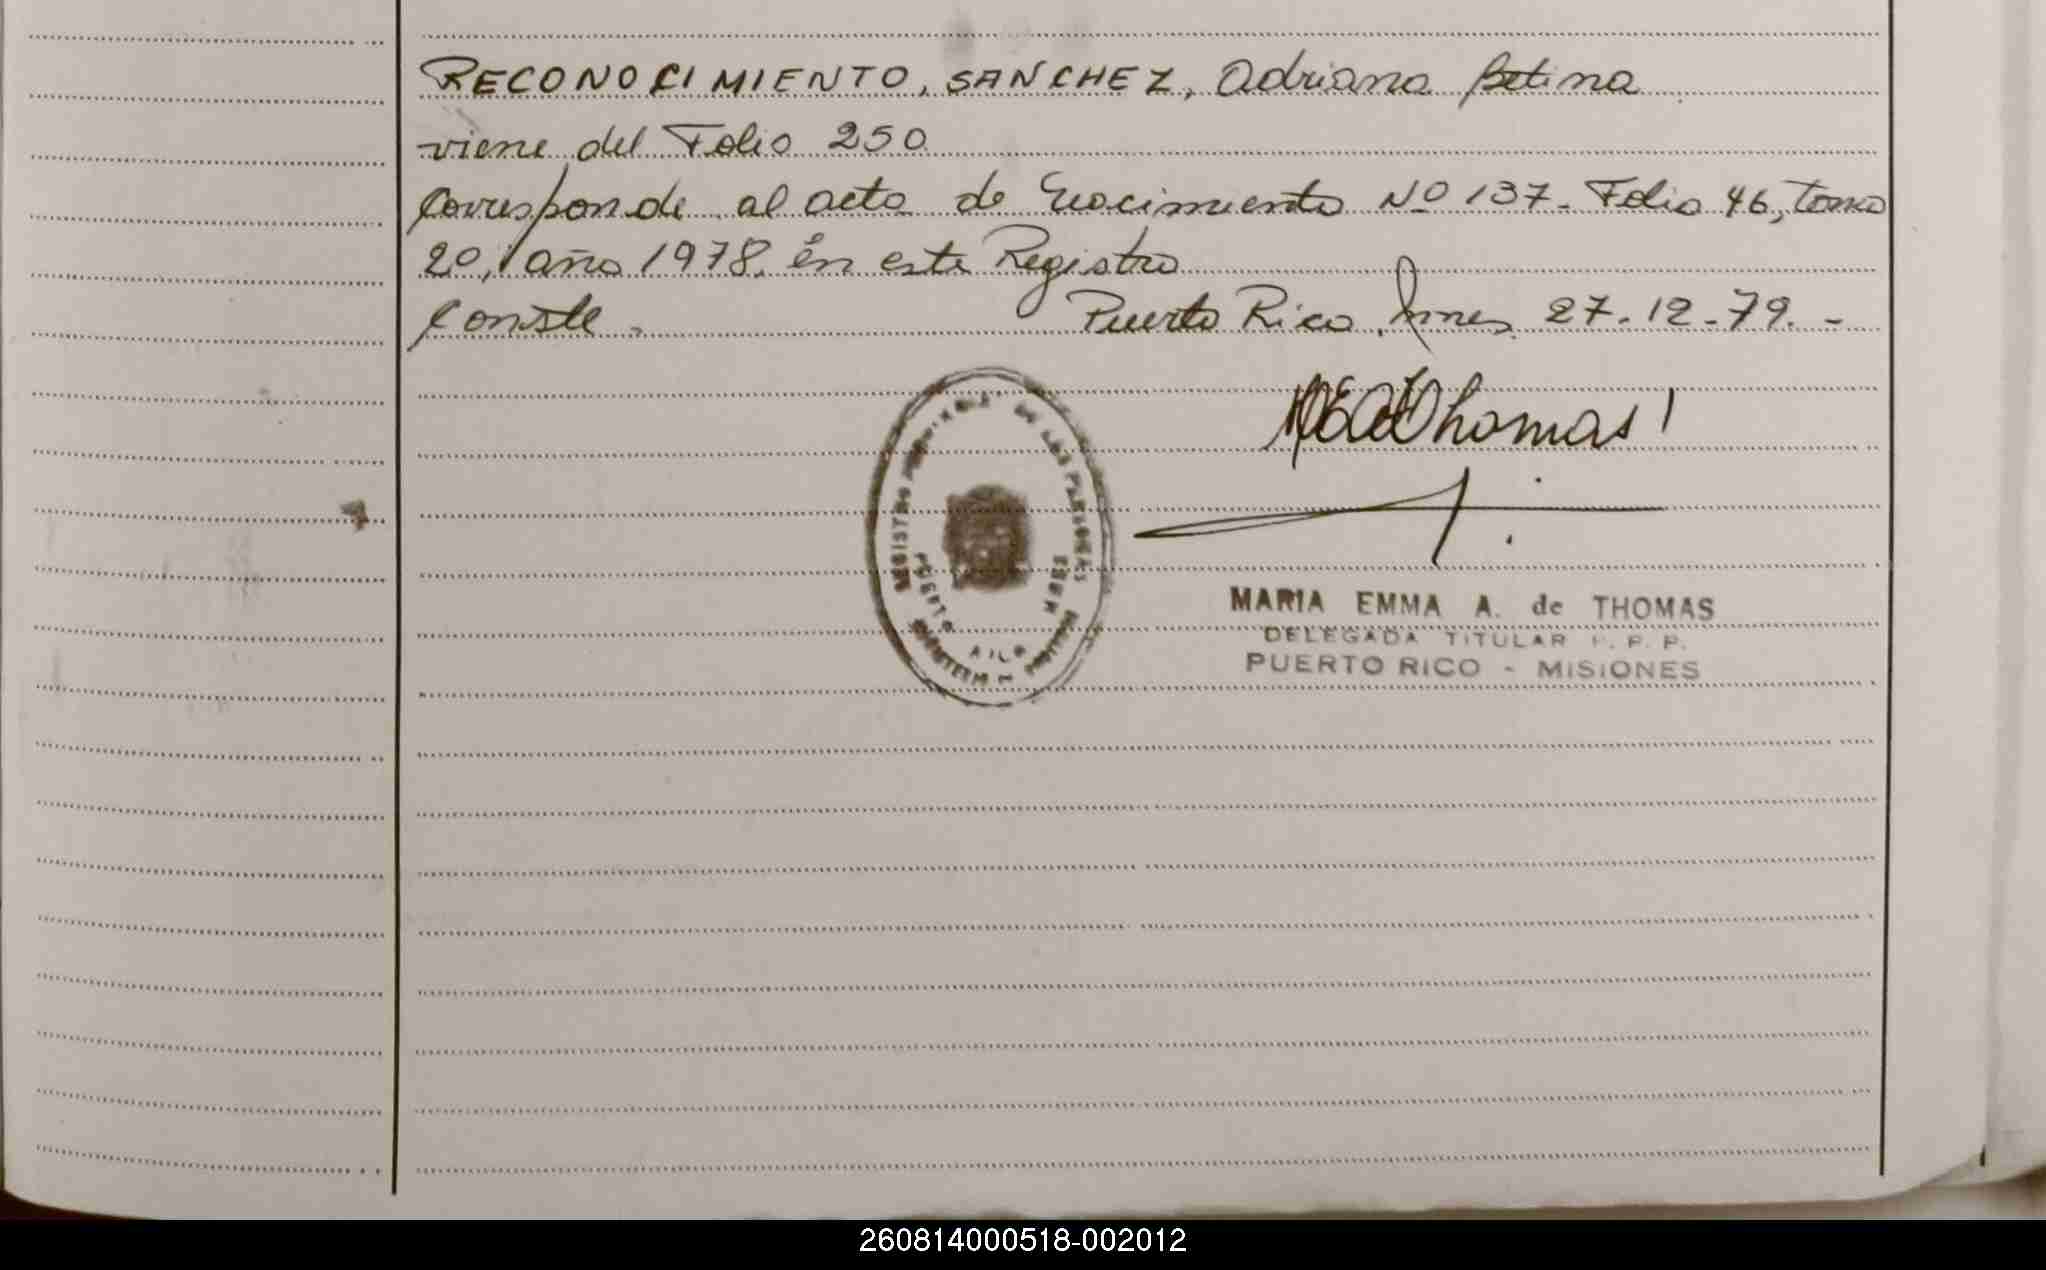 RECONOCIMIENTO, SANCHEZ, Adriana Betina
viene del Folio 250
Corresponde al acta de Nacimiento Nº 137- Folio 46, tomo
20, año 1978. En este Registro
Conste. Puerto Rico, Mnes. 27-12-79.-
Thomas
REGISTRO PROVINCIAL DE LAS PERSONAS
PUERTO RICO
MARIA EMMA A. de THOMAS
DELEGADA TITULAR R. P. P.
PUERTO RICO - MISIONES
260814000518-002012